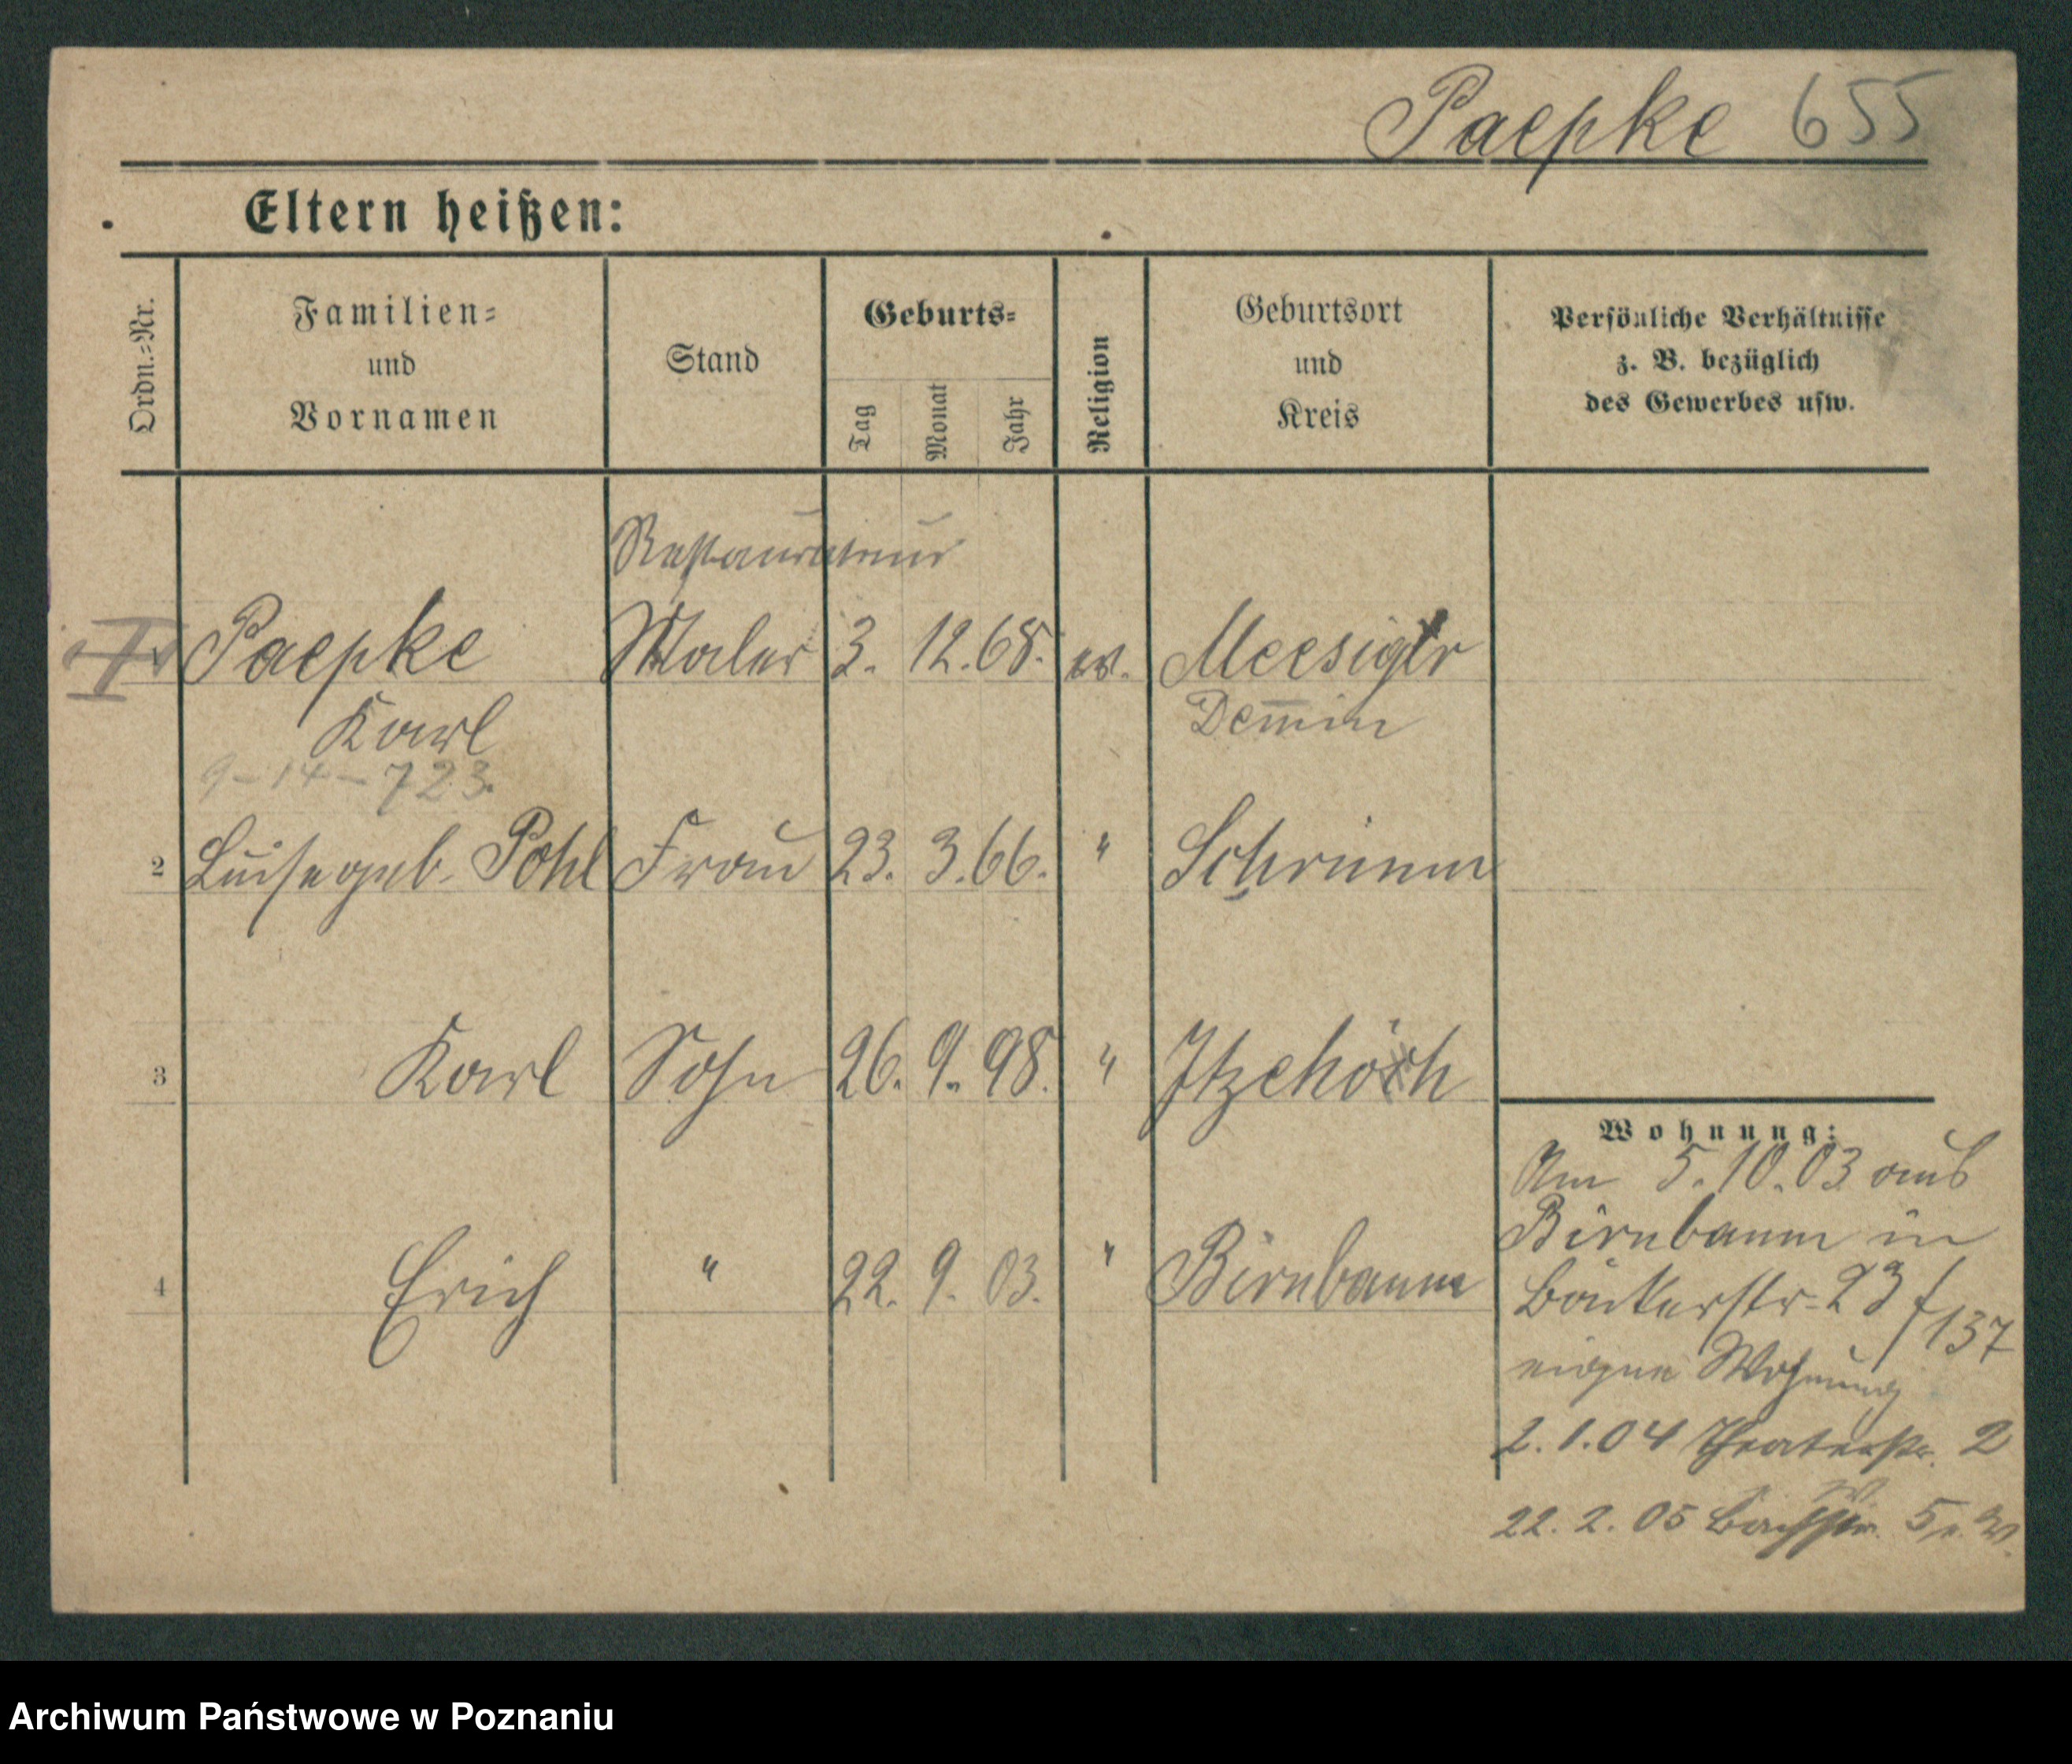 Paepke 655
Eltern heißen:
Ordn.-Nr.
Familien-
und
Vornamen
Stand
Geburts-
Tag
Monat
Jahr
Religion
Geburtsort
und
Kreis
Persönliche Verhältnisse
z. B. bezüglich
des Gewerbes usw.
Restaurateur
Paepke Maler 3. 12. 68. ev. Meesiger
Karl Demmin
9-14-723.
2 Luise geb. Pohl Frau 23. 3. 66. " Schrimm
3 Karl Sohn 26. 9. 98. " Itzehöh
4 Erich " 22. 9. 03. " Birnbaum
Wohnung:
Am 5.10.03 aus
Birnbaum in
Bäckerstr. 23
137
eigene Wohnung
2.1.04 Theaterstr. 2
22.2.05 Bachstr. 5 e. W.
Archiwum Państwowe w Poznaniu